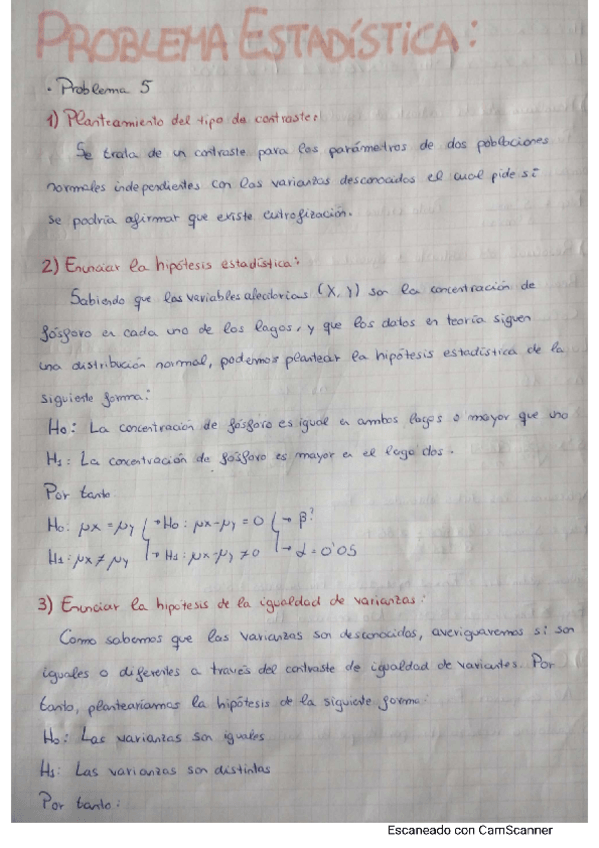 PROBLEMA ESTADÍSTICA:
· Problema 5
1) Planteamiento del tipo de contraste:
Se trata de un contraste para los parámetros de dos poblaciones
normales independientes con las varianzas desconocidas el cual pide si
se podría afirmar que existe eutrofización.
2) Enunciar la hipótesis estadística:
Sabiendo que las variables aleatorias (X, Y) son la concentración de
fósforo en cada uno de los lagos, y que los datos en teoría siguen
una distribución normal, podemos plantear la hipótesis estadística de la
siguiente forma:
H₀: La concentración de fósforo es igual en ambos lagos o mayor que uno
H₁: La concentración de fósforo es mayor en el lago dos.
Por tanto
H₀: μx = μy → H₀: μx-μy = 0 → β?
H₁: μx ≠ μy → H₁: μx-μy ≠ 0 → α = 0'05
3) Enunciar la hipotesis de la igualdad de varianzas:
Como sabemos que las varianzas son desconocidas, averiguaremos si son
iguales o diferentes a través del contraste de igualdad de variantes. Por
tanto, plantearíamos la hipótesis de la siguiente forma:
H₀: Las varianzas son iguales
H₁: Las varianzas son distintas
Por tanto:
Escaneado con CamScanner